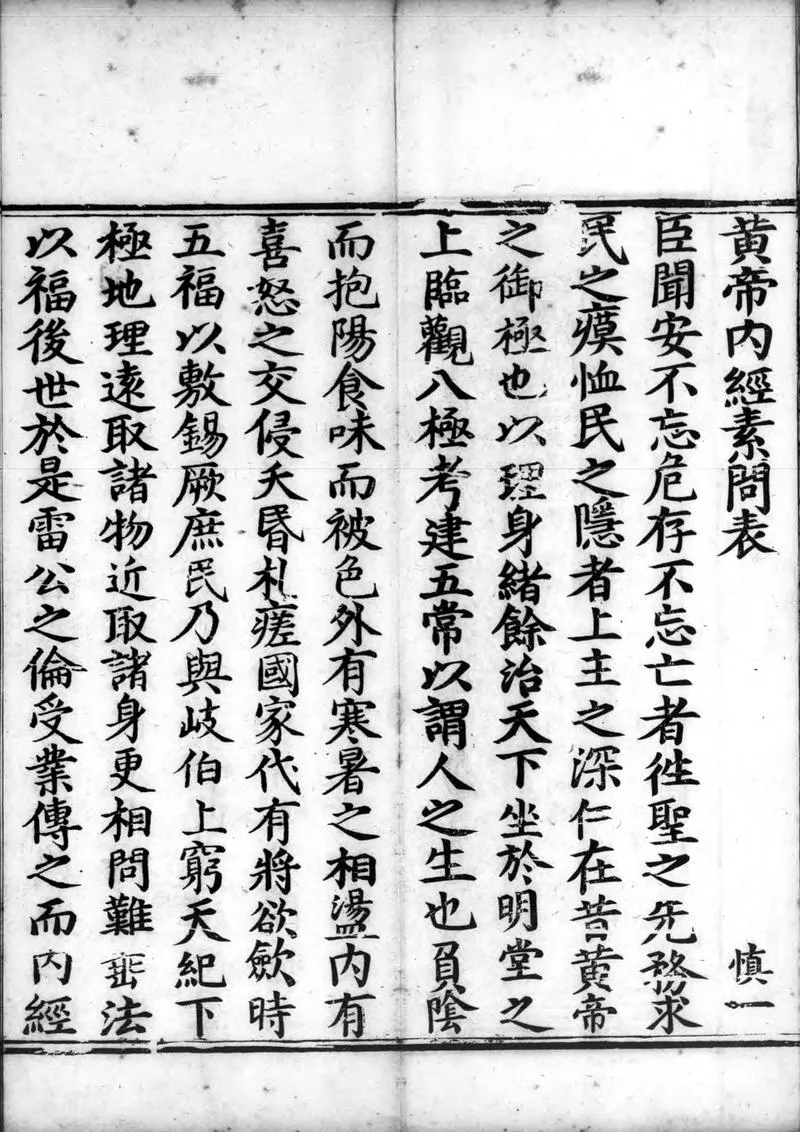 黄帝内經素問表 慎一
臣聞安不忘危存不忘亡者徃聖之先務求
民之瘼恤民之隱者上主之深仁在昔黄帝
之御極也以理身緒餘治天下坐於明堂之
上臨觀八極考建五常以謂人之生也負陰
而抱陽食味而被色外有寒暑之相盪内有
喜怒之交侵夭昏札瘥國家代有將欲歛時
五福以敷錫厥庶民乃與岐伯上窮天紀下
極地理遠取諸物近取諸身更相問難埀法
以福後世於是雷公之倫受業傳之而内經